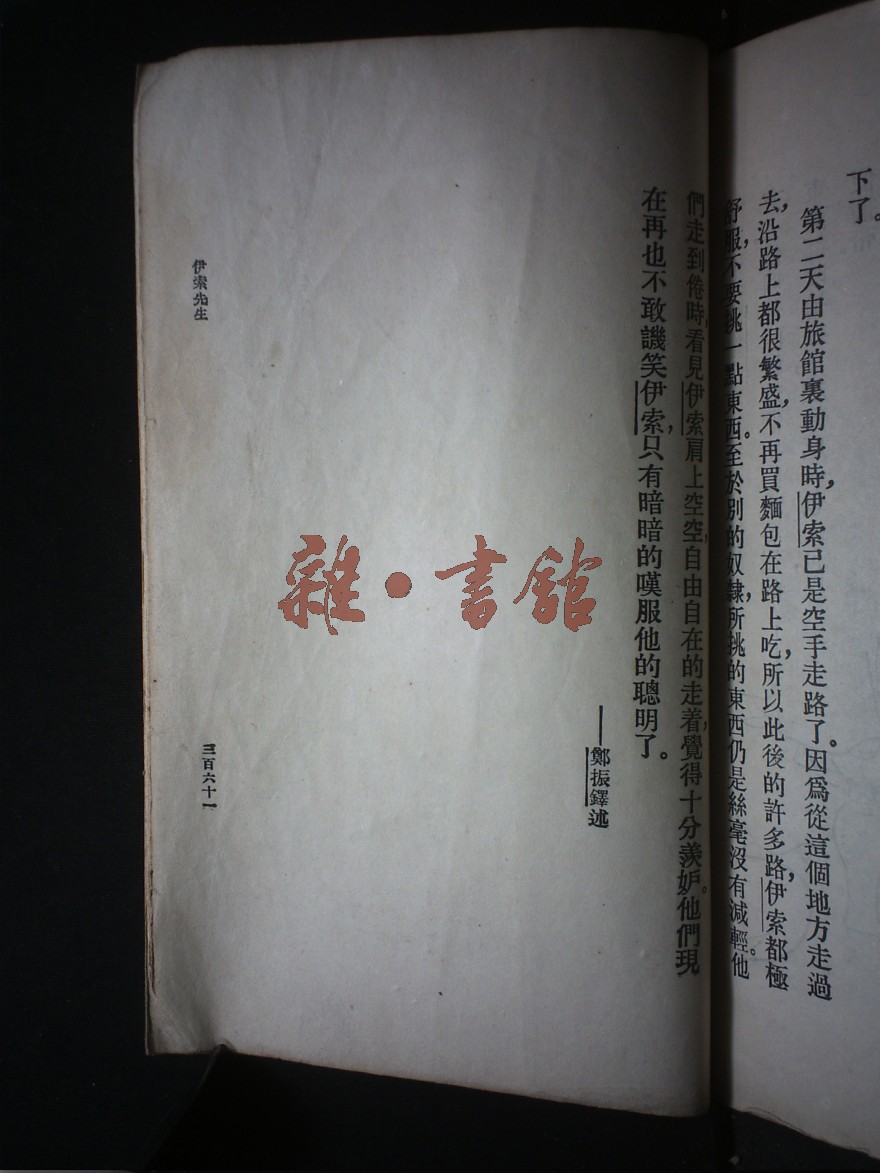 下了。
第二天由旅館裏動身時，伊索已是空手走路了。因爲從這個地方走過
去，沿路上都很繁盛，不再買麵包在路上吃，所以此後的許多路，伊索都極
舒服，不要挑一點東西。至於別的奴隸，所挑的東西仍是絲毫沒有減輕。他
們走到倦時，看見伊索肩上空空，自由自在的走着，覺得十分羨妒。他們現
在再也不敢譏笑伊索，只有暗暗的嘆服他的聰明了。
——鄭振鐸述
伊索先生
三百六十一
雜·書館